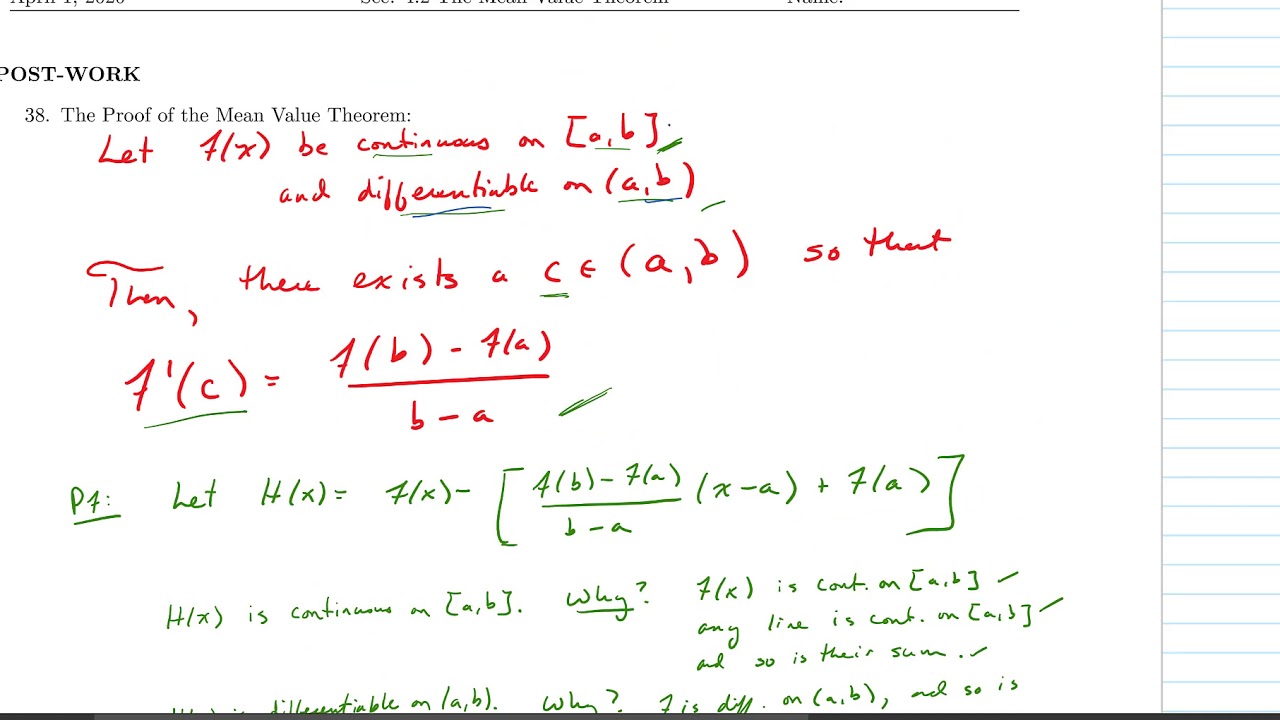 POST-WORK
38. The Proof of the Mean Value Theorem:
Let f(x) be continuous on [a,b]
and differentiable on (a,b)
Then, there exists a c ∈ (a,b) so that
f'(c) = \frac{f(b) - f(a)}{b - a}
Pf: Let H(x) = f(x) - [ \frac{f(b) - f(a)}{b - a} (x-a) + f(a) ]
H(x) is continuous on [a,b]. Why? f(x) is cont. on [a,b] ✓
any line is cont. on [a,b] ✓
and so is their sum. ✓
is differentiable on (a,b). Why? f is diff. on (a,b), and so is